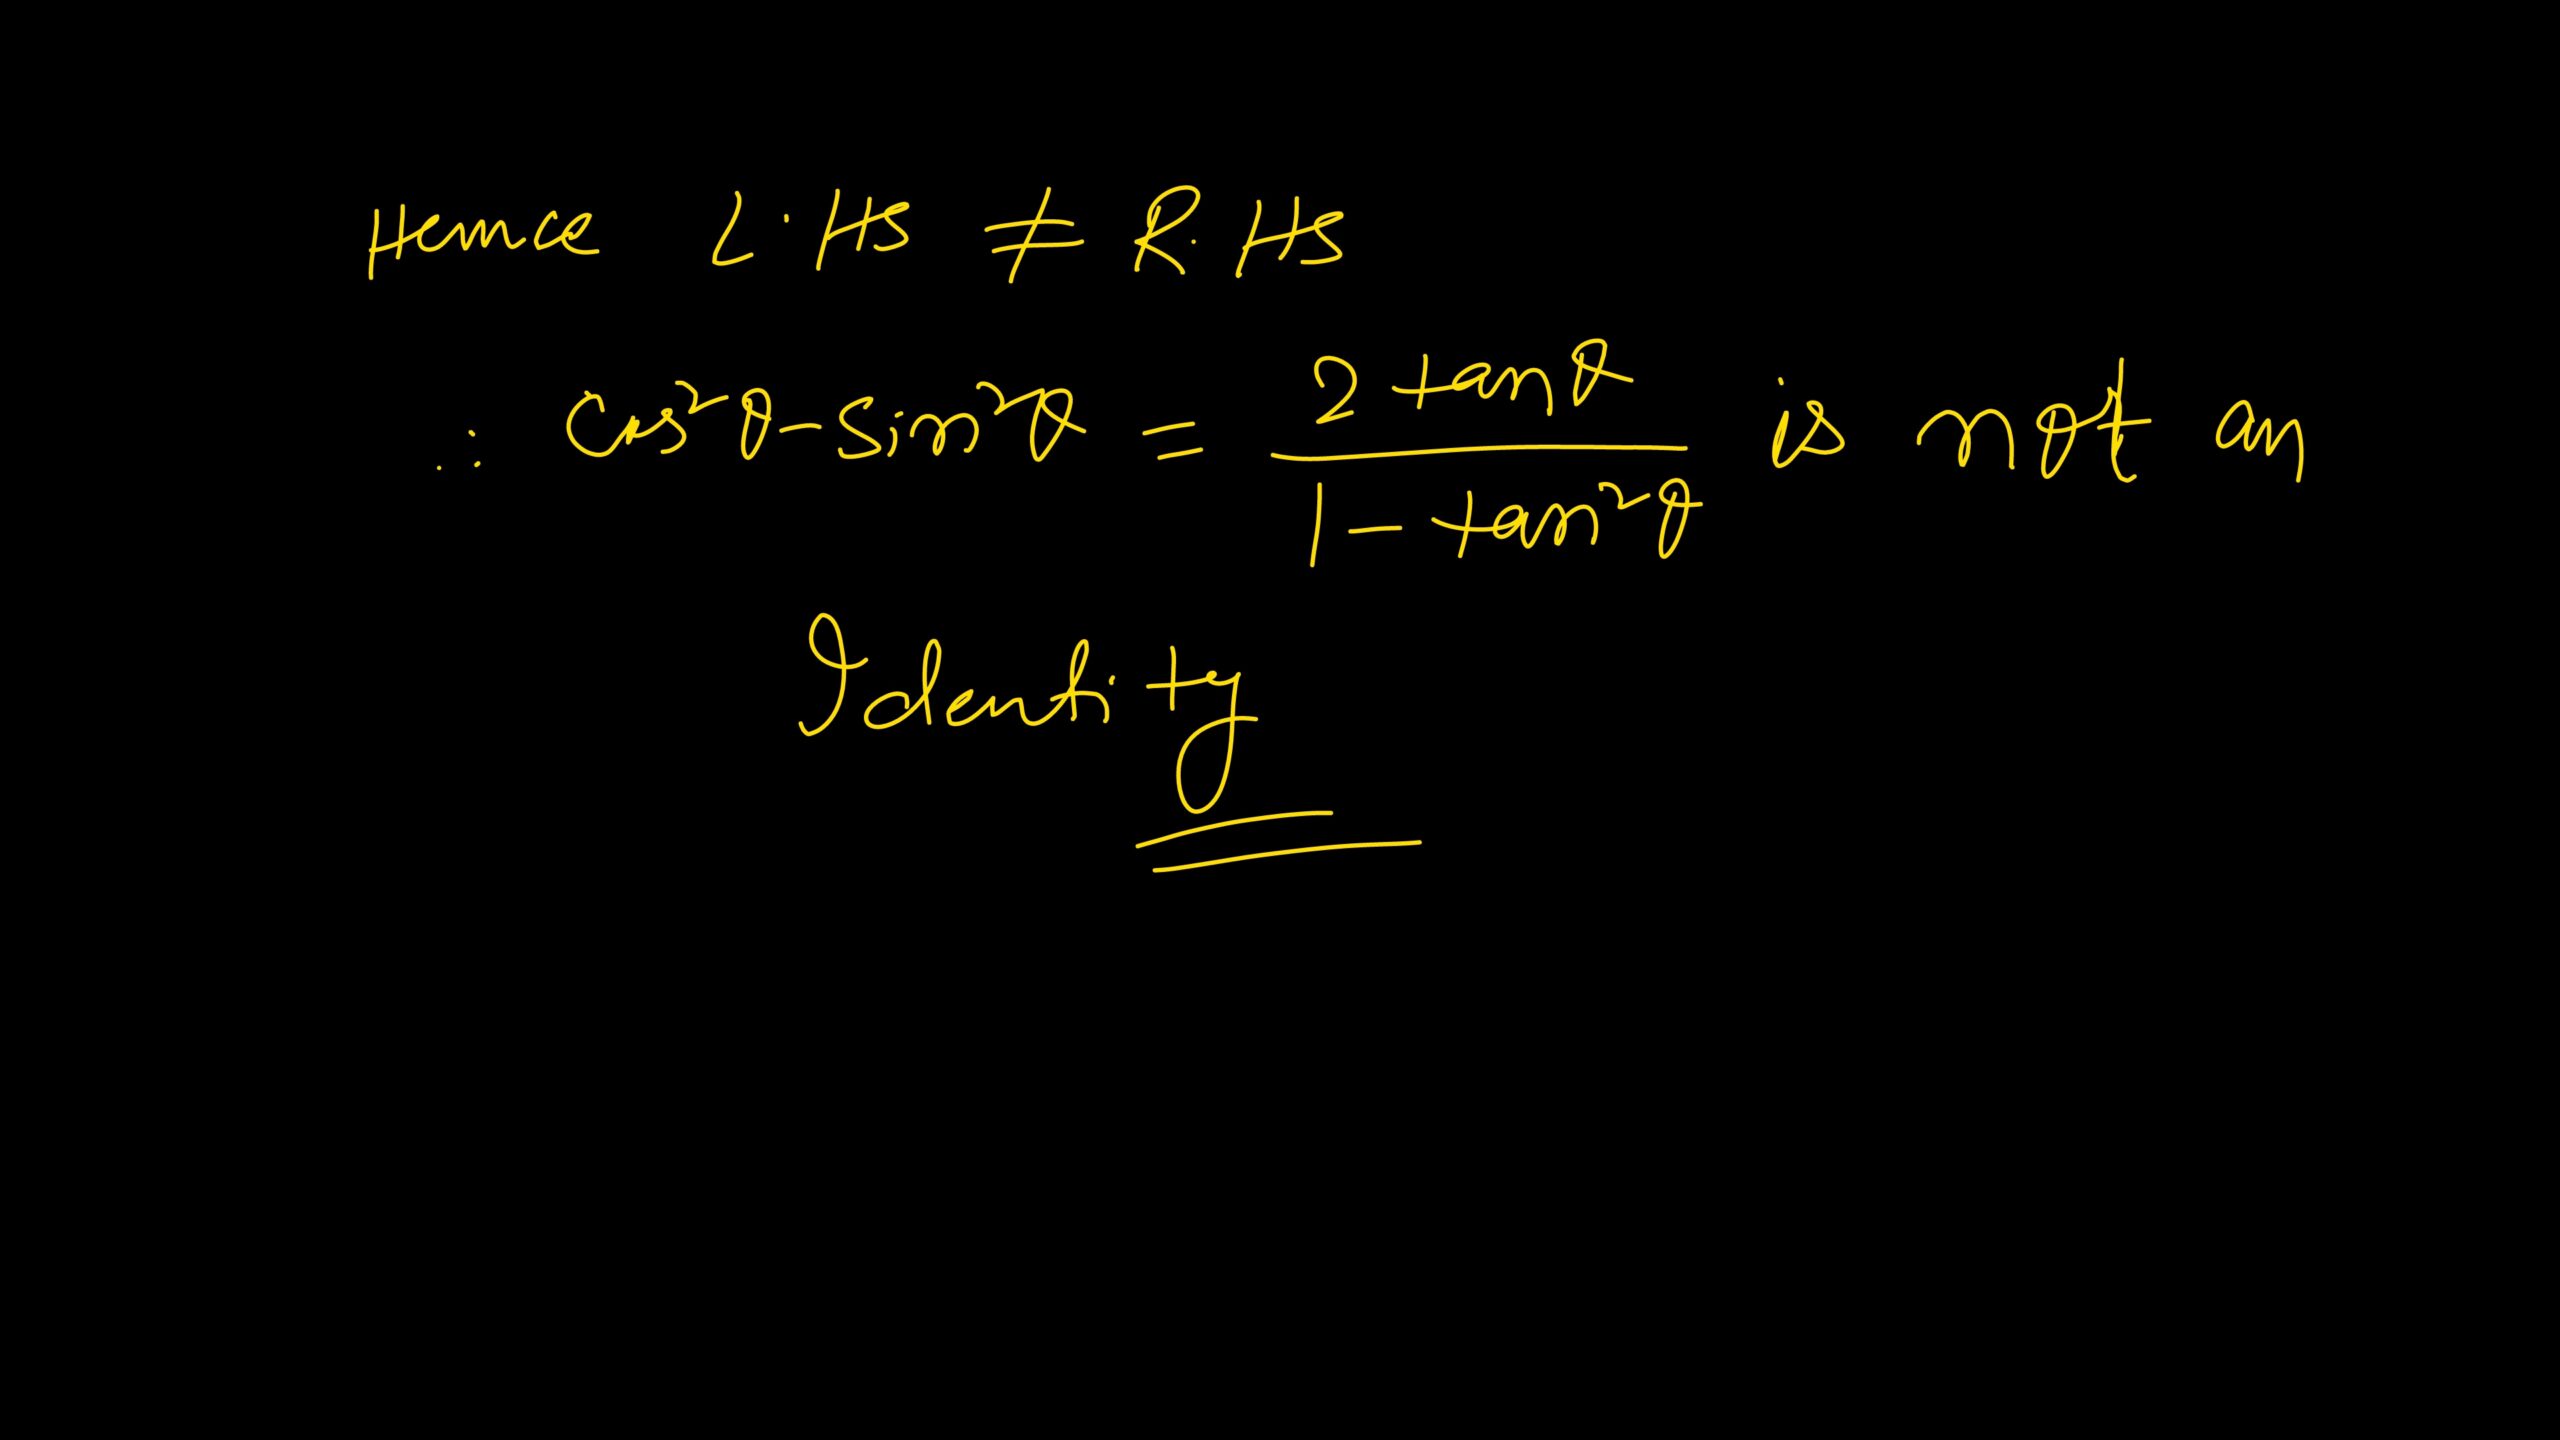 Hence L.HS ≠ R.HS
∴ Cos²θ - Sin²θ = 2 tanθ / 1 - tan²θ is not an
Identity